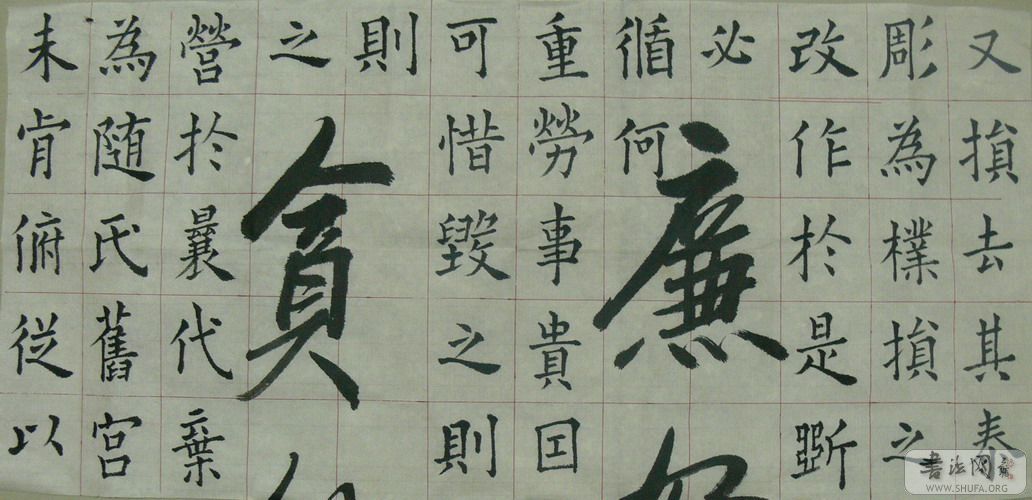 未肯俯従以
為随氏舊宮
營扵曩代棄
之
則
貪
可惜毀之則
重勞事貴囙
循何
必
廉
改作扵是斲
彫為樸損之
又損去其泰
书法网
WWW.SHUFA.ORG